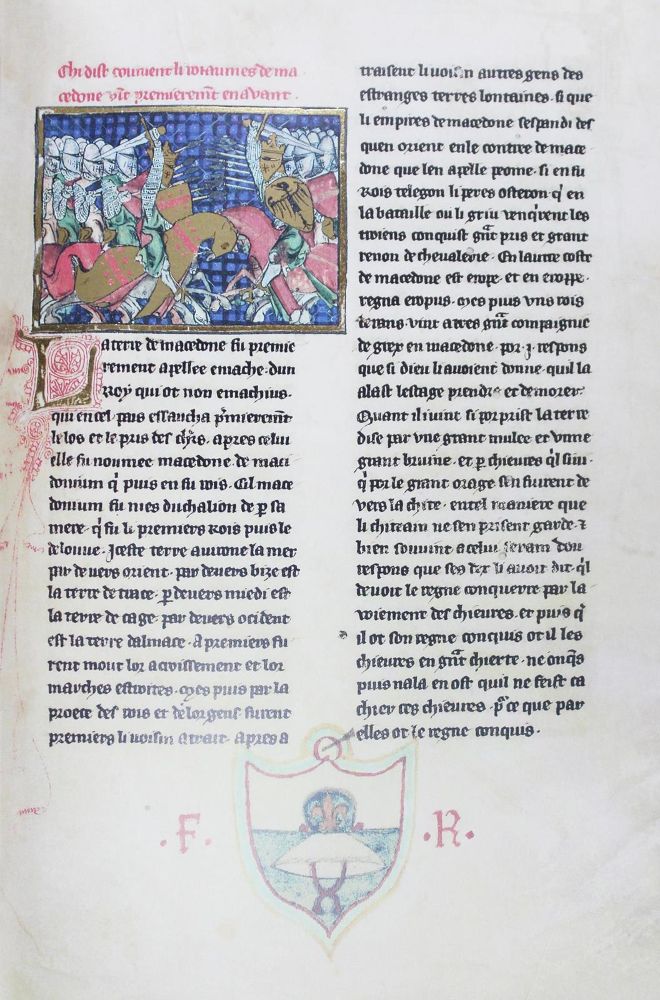 Chi dist comment li roiaumes de ma
cedone vīt premieremēt en avant.
La terre de macedone fu premie
rement apellee emache. dun
Roy qui ot non emachius.
qui en cel pais essaucha pˉmieremēt
le los et le pris des chr̄s. apres celui
elle fu noumee macedone de maci
donium q̄ puis en fu rois. Cil mace
donium fu nies duchalion de ꝑ sa
mere. q̄ fu li premiers Rois puis le
deloiue. Iceste terre avirone la mer
par devers orient. par devers bize est
la terre de trace. ꝑ devers miedi est
la terre de cage. par devers ocident
est la terre dalmace. A premiers fu
rent mout lor acrissement et lor
marches estroites. Mes puis par la
proece des rois et de lor gens furent
premiers li voisin atrait. Apres a
traisent li voisin autres gens des
estranges terres lontaines. si que
li empires de macedone sespandi des
quen orient en le contree de mace
done que len apelle peone. si en fu
Rois telegon li peres osteron. q̄ en
la bataille ou li griu venq̄rent les
troiens conquist ḡnt pris et grant
renon de chevalerie. En lautre coste
de macedone est erope. et en eroppe.
regna eropus. Mes puis uns rois
vint atres ḡnt compaignie
de grex en macedone. por .j. respons
que si dieu li avoient donne. quil la
alast lestage prendre et demorer.
Quant il vint si porprist la terre
dise par une grant mulce et une
grant bruine. et ꝑ chieures q̄l siui
q̄ por le grant orage sen fuirent de
vers la chite. en tel maniere que
li chiteain ne sen prisent garde. ⁊
bien souvint a celui seram dou
respons que ses dex li avoit dit. q̄l
devoit le regne conquerre par la
voiement des chieures. et puis q̄
il ot son regne conquis ot il les
chieures en ḡnt chierte. ne onq̄s
puis nala en ost quil ne feist ca
chier ces chieures. pˉ ce que par
elles ot le regne conquis.
.F. .R.